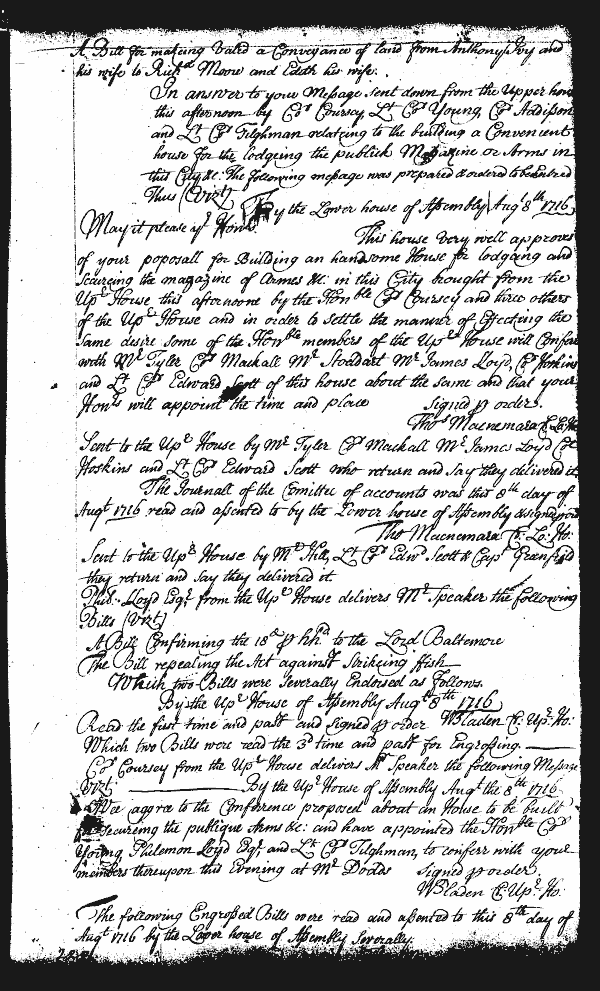 A Bill for making Valid a Conveyance of land from Anthony Ivy and
his wife to Richd Moore and Edith his wife.
In answer to your Message sent down from the Upper house
this afternoon by Col Coursey, Lt Col Young, Col Addison
and Lt Col Tilghman relating to the building a Convenient
house for the lodgeing the publick Magazine or Arms in
this City &c: The following message was prepared & ordered to be entred
Thus (Vizt)
By the Lower house of Assembly Augt 8th 1716
May it please yr Honrs
This house very well approves
of your proposall for Building an handsome House for lodgeing and
secureing the magazine of Armes &c: in this City brought from the
Upr House this afternoone by the Honble Col Coursey and three others
of the Upr House and in order to settle the manner of Effecting the
same desire some of the Honble members of the Upr House will Confer
with Mr Tyler Col Mackall Mr Stoddart Mr James Loyd, Col Hoskins
and Lt Col Edward Scott of this house about the same and that your
Honrs will appoint the time and place signed p order.
Thos Macnemara Cl. Lo. Ho.
Sent to the Upr House by Mr Tyler Col Mackall Mr James Loyd Col
Hoskins and Lt Col Edward Scott who return and say they delivered it.
The Journall of the Comittee of accounts was this 8th day of
Augt 1716 read and assented to by the Lower house of Assembly & signed p ord
Tho Macnemara Cl. Lo: Ho:
Sent to the Upr House by Mr Hill, Lt Col Edwd Scott & Capt Greenfield
they return and say they delivered it
Phil: Lloyd Esqr from the Upr House delivers Mr Speaker the following
Bills (Vizt)
A Bill Confirming the 18d p hhd to the Lord Baltemore
The Bill repealing the Act against Strikeing ffish
Which two Bills were severally Endorsed as follows.
By the Upr House of Assembly Augst 8th 1716
Read the first time and past and signed p order WBladen Cl. Upr. Ho:
Which two Bills were read the 3d time and past for Engrossing.
Col Coursey from the Upr House delivers Mr Speaker the following Message
Vizt. By the Upr House of Assembly Augt the 8th 1716
Wee agree to the Conference proposed about an House to be built
for secureing the publique Arms &c: and have appointed the Honble Col
Young, Philemon Lloyd Esqr, and Lt Col Tilghman, to conferr with your
members thereupon this Evening at Mr Dodds Signed p order.
WBladen Cl. Upr. Ho.
The following Engrossed Bills were read and assented to this 8th day of
Augt 1716 by the Lower house of Assembly severally.